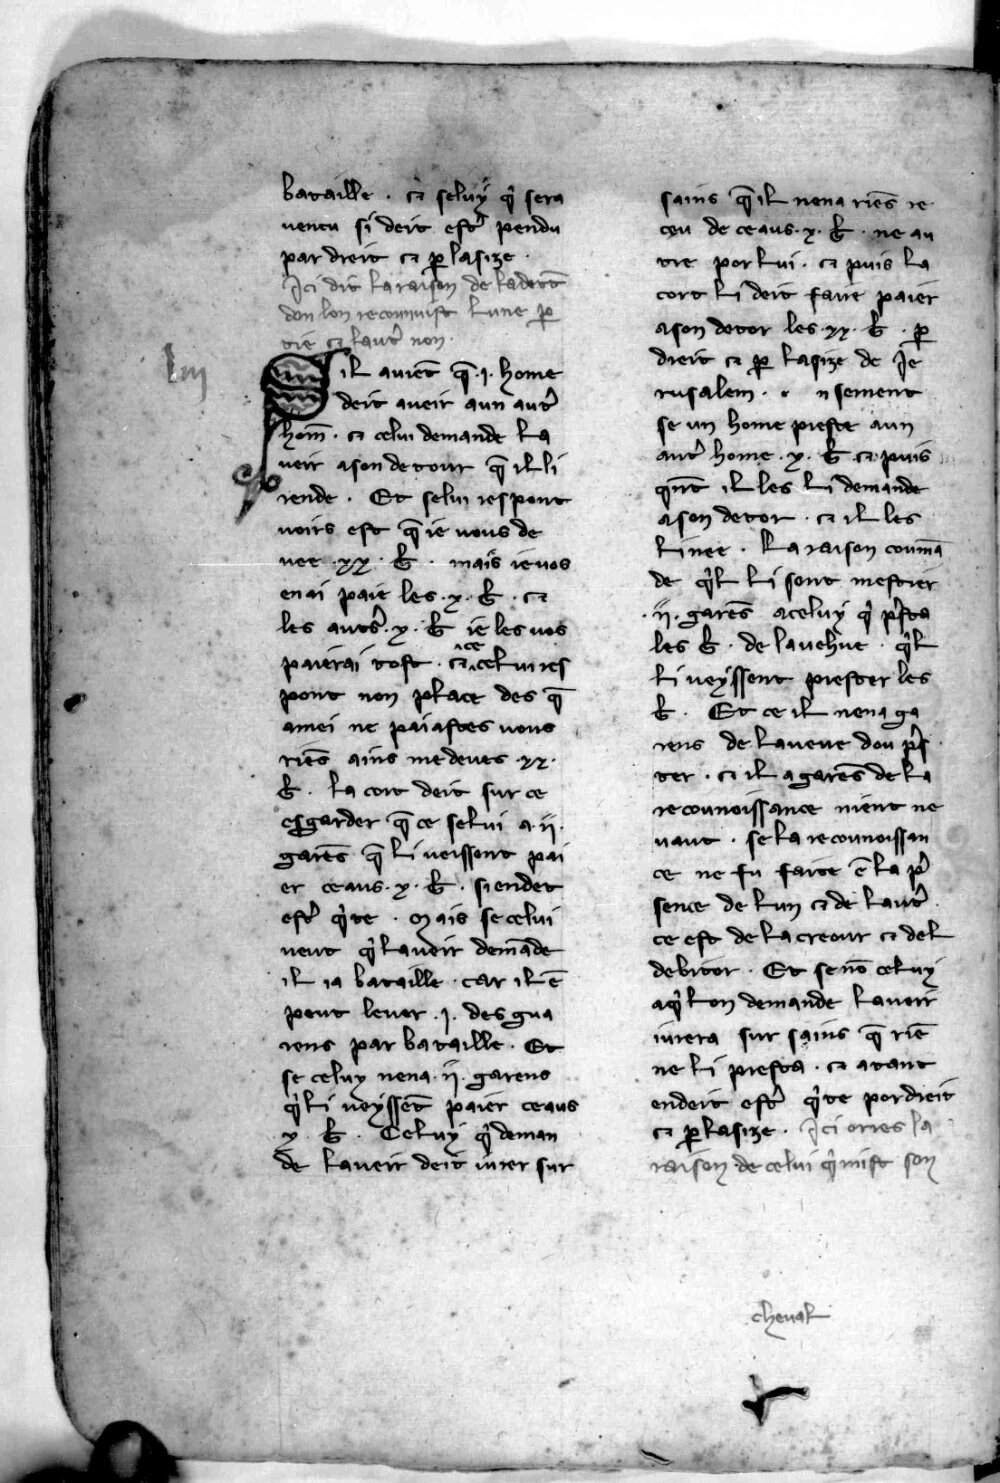 bataille . ⁊ seluy q̉ sera
uencu si deit estr̉ pendu
par dreit ⁊ ꝑ lasize .
Ici dit la raison de la dett̄
don lon reconuist lune ꝑ
tie ⁊ lautr̉ non .
liij
Sil auiēt q̄ .i. home
deit aueir aun autr̉
hom̄ . ⁊ celui demande la
ueir ason detour q̄ il li
rende . Et selui respont
uoirs est q̄ ie uous de
uee .xx. ƀ . mais ie uos
en ai paie les .x. ƀ . ⁊
les autr̉s .x. ƀ ie les uos
paierai tost . ⁊ ce celui res
pont non place des q̄
amei ne paiastes uous
riēs ains me deues .xx.
ƀ . la cort deit sur ce
esgarder q̄ ce selui a .ii.
garēs q̄ li ueissent pai
er ceaus .x. ƀ . si en det
estr̉ q̉te . Mais se celui
ueut q̉ lauer demāde
il i a bataille . car il ē
peut leuer .i. des gua
rens par bataille . Et
se celuy nena .ii. garens
q̉ li ueyssēt paier ceaus
x ƀ . Celuy q̉ deman
de laueir deit iurer sur
sains q̄ il nena riēs re
ceu de ceaus .x. ƀ . ne au
tre por lui . ⁊ puis la
cort li deit faire paier
ason detor les .xx. ƀ . ꝑ
dreit ⁊ ꝑ lasize de Ie
rusalem . . nsement
se un home preste aun
autr̉ home .x. ƀ ⁊ puis
q̉nt il les li demande
ason detor . ⁊ il les
li nee . La raison comā
de q̉l li sont mestier
.ii. garēs aceluy q̉ p̉sta
les ƀ . de lauehue . q̉l
li ueyssent prester les
ƀ . Et ce il nena ga
rens de laueue dou p̉s
ter . ⁊ il a garēs de la
reconnoissance nient ne
uaut . se la reconnoissan
ce ne fu faite ē la p̉
sence de lun ⁊ de lautr̉ .
ce est de lacreour ⁊ del
debitor . Et se nō celuy
aq̉ lon demande laueir
iurera sur sains q̄ riē
ne li presta . ⁊ atant
en deit estr̉ q̉te por dreit
⁊ ꝑ lasize . Ici ories la
raison de celui q̉ mist son
cheual